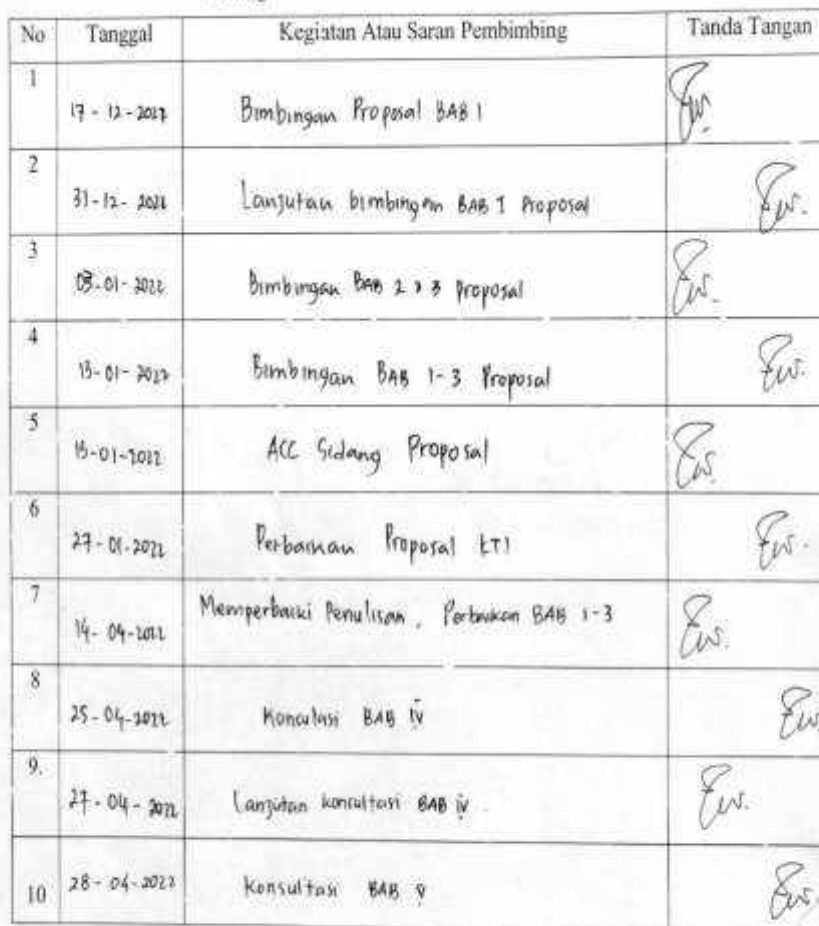 No Tanggal Kegiatan Atau Saran Pembimbing Tanda Tangan
1 17-12-2021 Bimbingan Proposal BAB 1
2 31-12-2021 Lanjutan bimbingan BAB I Proposal
3 03-01-2022 Bimbingan BAB 2 & 3 Proposal
4 13-01-2022 Bimbingan BAB 1-3 Proposal
5 13-01-2022 ACC Sidang Proposal
6 27-01-2022 Perbaikan Proposal KTI
7 14-04-2022 Memperbaiki Penulisan, Perbaikan BAB 1-3
8 25-04-2022 Konsulasi BAB IV
9. 27-04-2022 Lanjutan konsultasi BAB IV.
10 28-04-2022 Konsultasi BAB